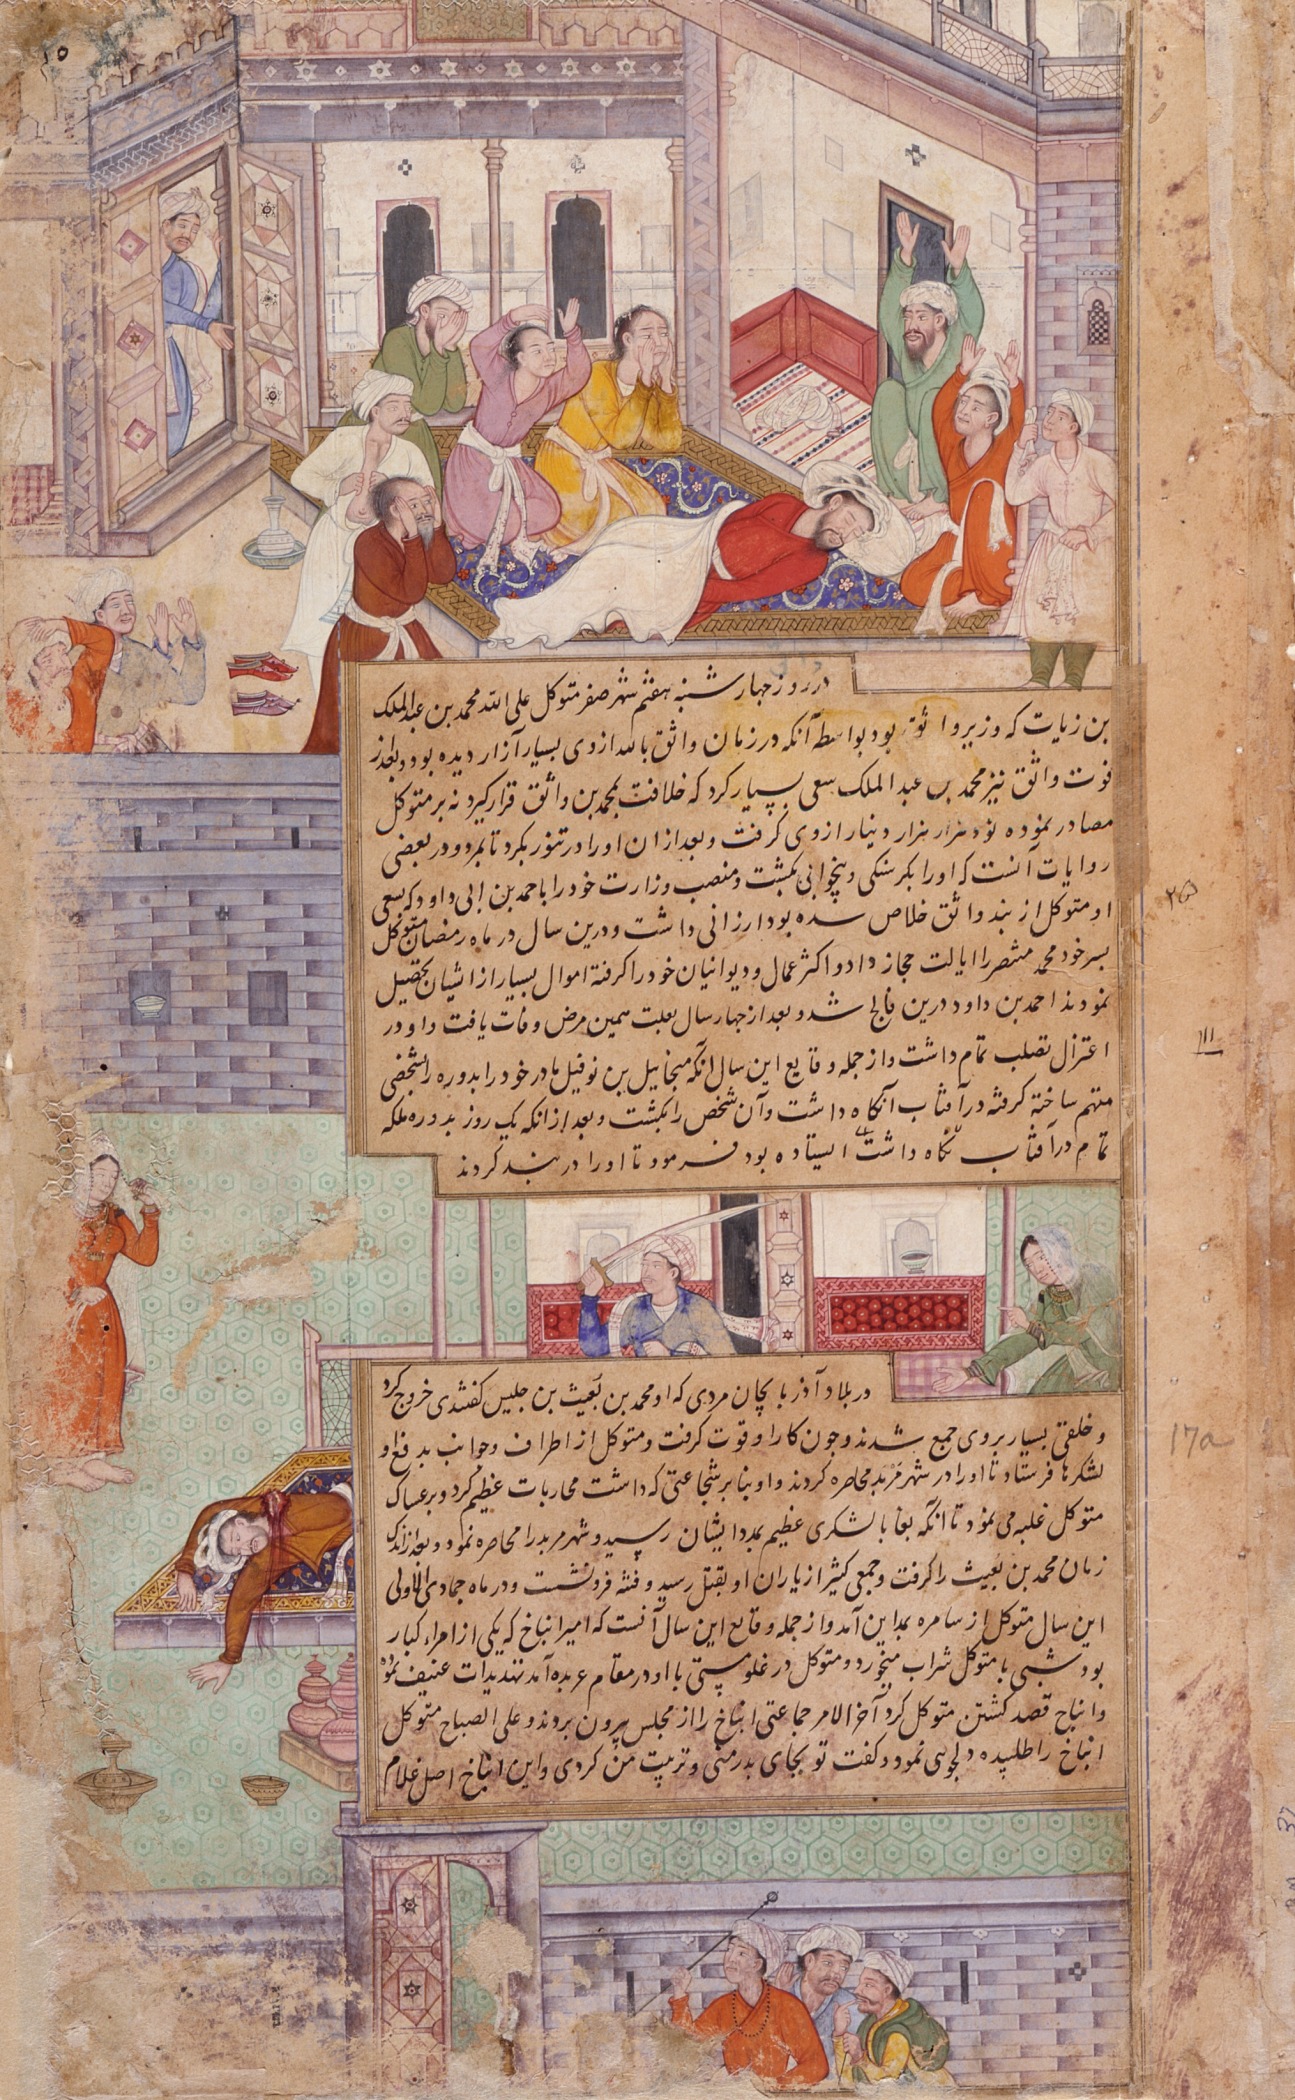 ۱۵
در روز چهارشنبه هفتم شهر صفر متوکل علی الله محمد بن عبدالملک
بن زیات که وزیر واثق بود بواسطه آنکه در زمان واثق بالله از وی بسیار آزار دیده بود و بعد از
فوت واثق نیز محمد بن عبد الملک سعی بسیار کرد که خلافت بمحمد بن واثق قرار گیرد نه بر متوکل
مصادر نموده نود هزار هزار دینار از وی گرفت و بعد از ان او را در تنور بکرد تا بمرد و در بعضی
روایات آنست که او را بگرسنگی و بیخوابی بکشت و منصب وزارت خود را باحمد بن ابی داود که بسعی
او متوکل از بند واثق خلاص شده بود ارزانی داشت و درین سال در ماه رمضان متوکل
پسر خود محمد منتصر را ایالت حجاز داد و اکثر عمال و دیوانیان خود را گرفته اموال بسیار از ایشان تحصیل
نمودند احمد بن داود درین فالج شد و بعد از چهار سال بعلت همین مرض وفات یافت و او در
اعتزال تصلب تمام داشت و از جمله وقایع این سال آنکه میخاییل بن نوفیل مادر خود را بدوره را بشخصی
متهم ساخته گرفته در آفتاب نگاه داشت و آن شخص را بکشت و بعد از انکه یک روز بدوره ملکه
تمام در آفتاب نگاه داشت ایستاده بود فرمود تا او را در بند کردند
در بلاد آذربایجان مردی که او محمد بن بعیث بن جلیس گفتندی خروج کرد
و خلقی بسیار بر وی جمع شدند و چون کار او قوت گرفت و متوکل از اطراف و جوانب بدفع او
لشکرها فرستاد تا او را در شهر مرند محاصره کردند و او بنا بر شجاعتی که داشت محاربات عظیم کرد و بر عساکر
متوکل غلبه می نمود تا انکه بغا با لشکری عظیم بمدد ایشان رسید و شهر مرند را محاصره نمود و بعد از اندک
زمان محمد بن بعیث را گرفت و جمعی کثیر از یاران او بقتل رسید و فتنه فرو نشست و در ماه جمادی الاولی
این سال متوکل از سامره بمداین آمد و از جمله وقایع این سال آنست که امیر ایتاخ که یکی از امراء کبار
بود شبی با متوکل شراب میخورد و متوکل در غلو مستی با او در مقام عربده آمد تهدیدات عنیف نمود
و ایتاخ قصد کشتن متوکل کرد آخر الامر جماعتی ایتاخ را از مجلس بیرون بردند و علی الصباح متوکل
ایتاخ را طلبیده دلجویی نمود و گفت تو بجای پدر منی و تربیت من کردی و این ایتاخ اصل غلام
111
17a